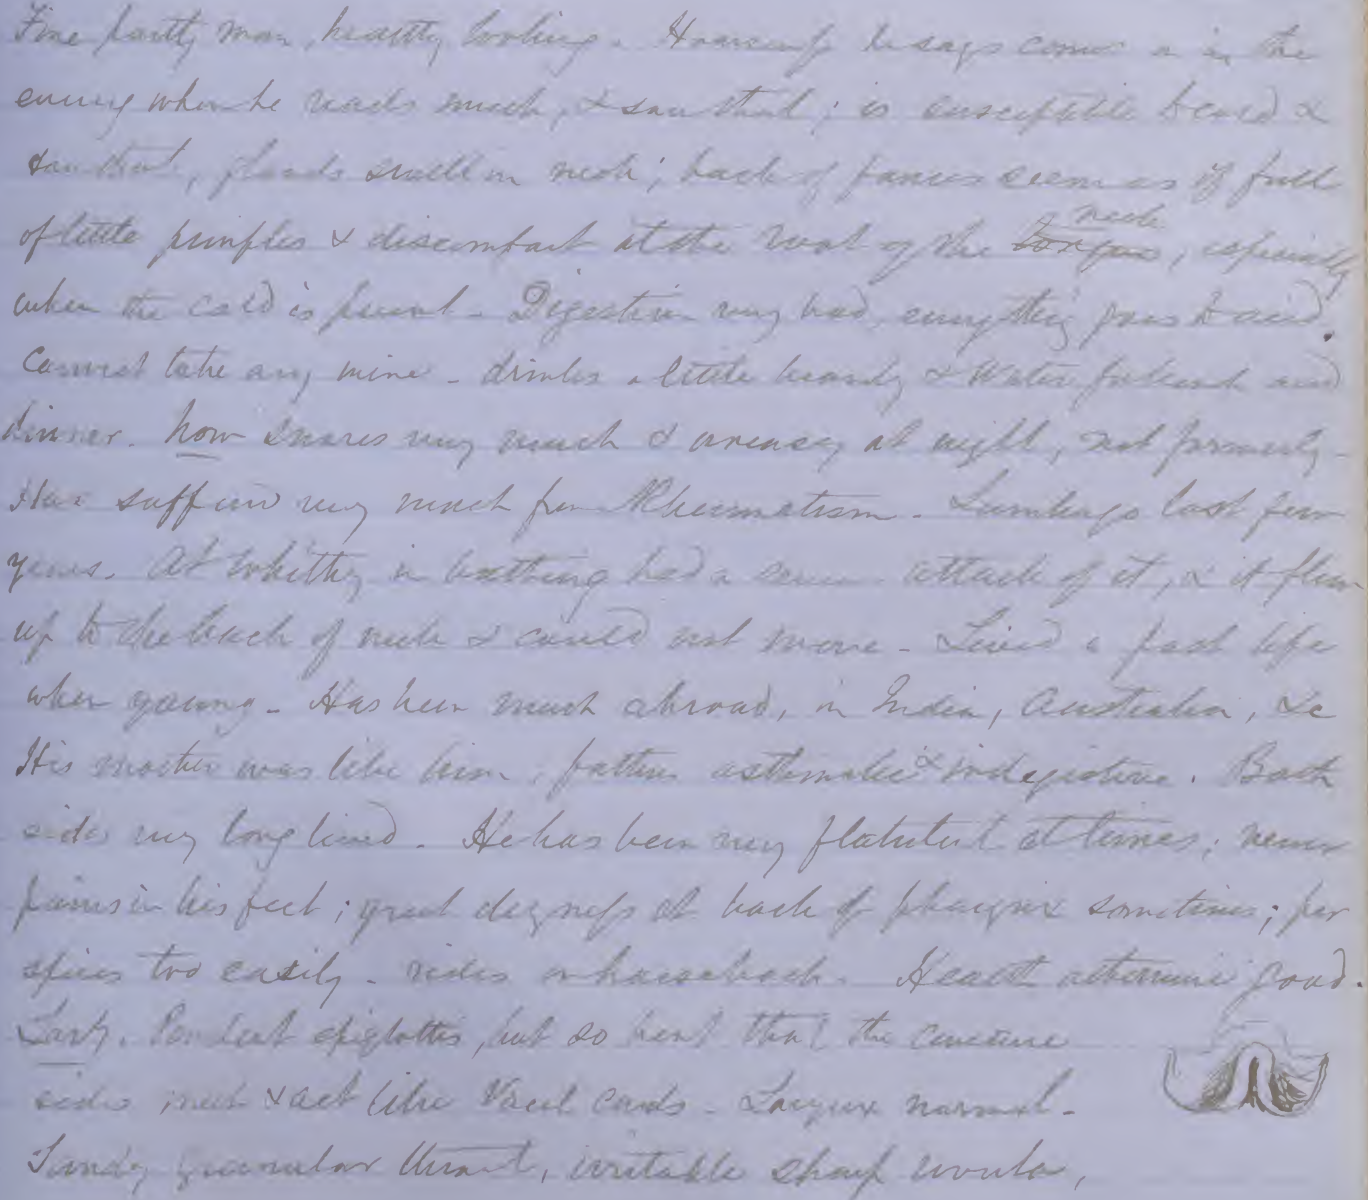 Fine portly man, healthy looking. Hoarseness he says comes on in the
evening when he reads much, & sore throat; is susceptible to cold &
sore throat, glands swell in neck; back of fauces seem as if full
of little pimples & discomfort at the root of the tongue neck, especially
when the cold is present. Digestion very bad, everything goes to acid.
Cannot take any wine. drinks a little brandy & Water for lunch and
dinner. Now snores very much & uneasy at night, not formerly.
Has suffered very much from Rheumatism. Lumbago last few
years. At Whitby in bathing had a severe attack of it, & it flew
up to the back of neck & could not move. Lived a fast life
when young. Has been much abroad, in India, Australia, &c
His mother was like him, father asthmatic & indigestive. Both
sides very long lived. He has been very flatulent at times; never
pains in his feet; great dryness at back of pharynx sometimes; per
spires too easily. rides on horseback. Health otherwise good.
Lary. Pendent epiglottis, but so bent that the concave
sides meet & act like Vocal Cords. Larynx normal.
granular throat, irritable sharp uvula,